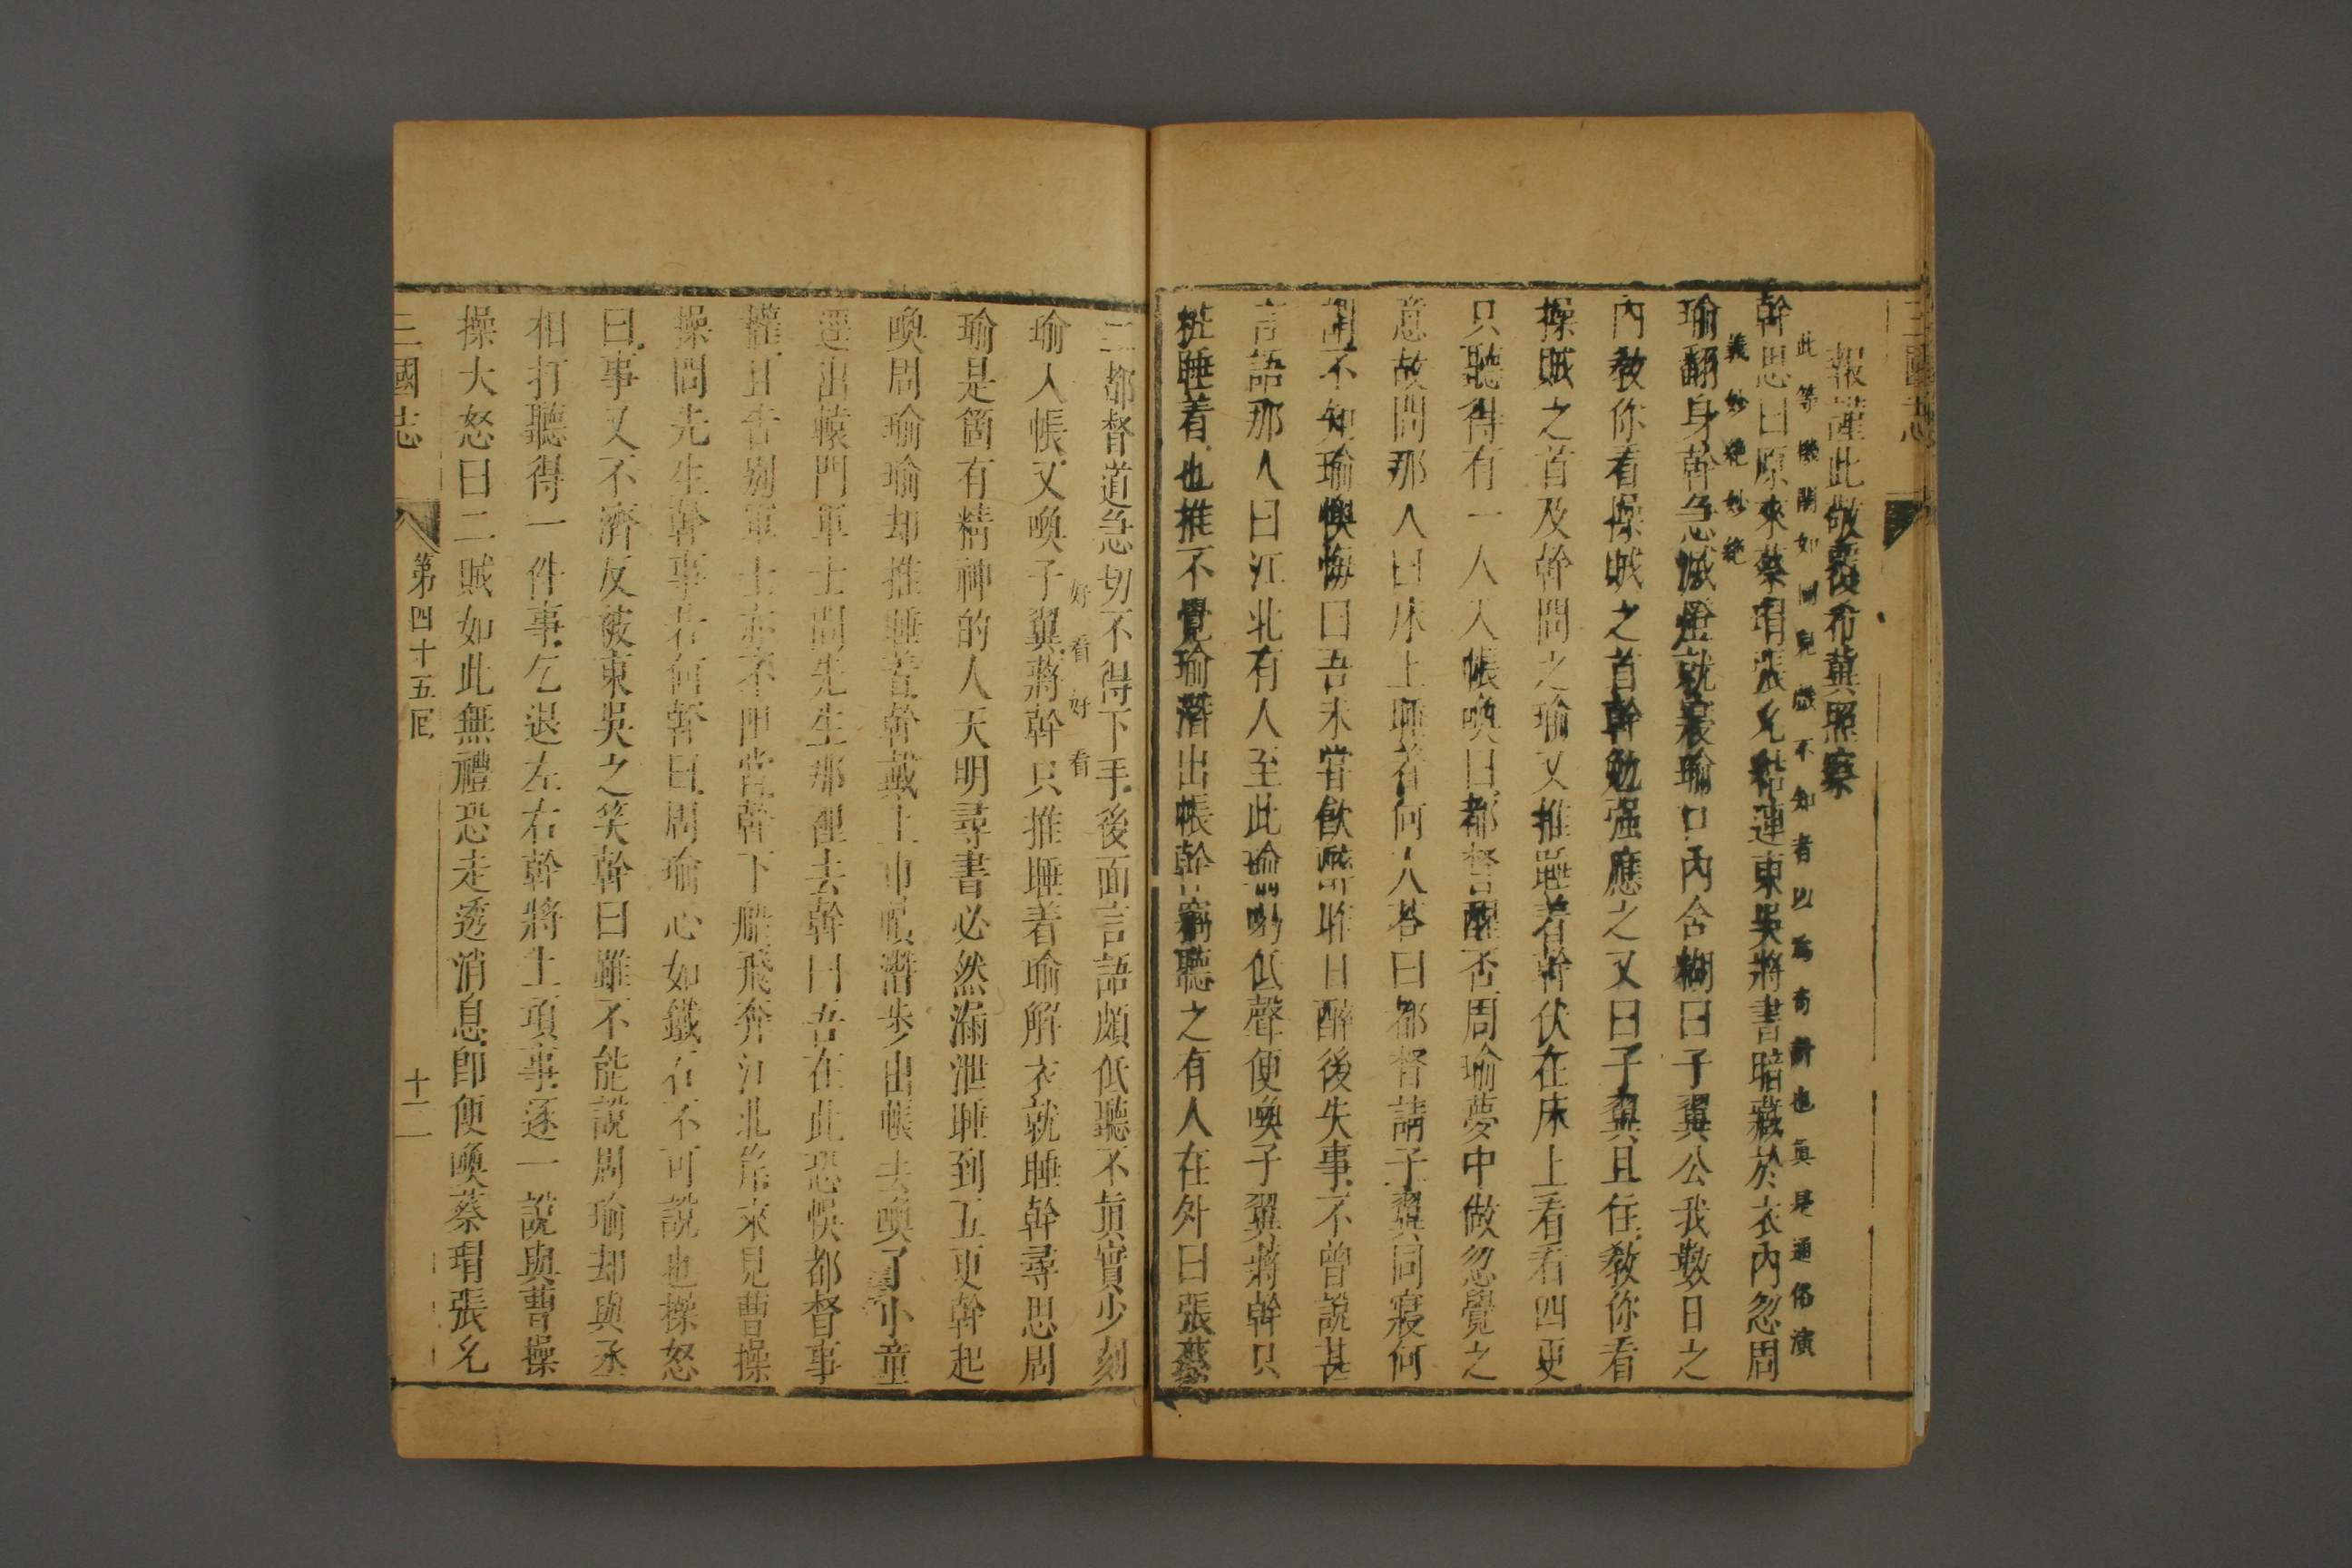 三國志
報謹此敬覆希冀照察
此等機關如同兒戲不知者以為奇計也真是通俗演
幹思曰原來蔡瑁張允結連東吳將書暗藏於衣內忽周
義妙絕妙絕
瑜翻身幹急滅燈就寢瑜口內含糊曰子翼公我數日之
內教你看操賊之首幹勉强應之又曰子翼且住教你看
操賊之首及幹問之瑜又推睡着幹伏在床上看看四更
只聽得有一人入帳喚曰都督醒否周瑜夢中做忽覺之
意故問那人曰床上睡着何人荅曰都督請子翼同寢何
故不知瑜懊悔曰吾未甞飲醉昨日醉後失事不曾說甚
言語那人曰江北有人至此瑜喝低聲便喚子翼蔣幹只
粧睡着也推不覺瑜潛出帳幹竊聽之有人在外曰張蔡
二都督道急切不得下手後面言語頗低聽不真實少刻
好看好看
瑜入帳又喚子翼蔣幹只推睡着瑜解衣就睡幹尋思周
瑜是箇有精神的人天明尋書必然漏泄睡到五更幹起
喚周瑜瑜却推睡着幹戴上巾幘潛步出帳去喚了小童
逕出轅門軍士問先生那裡去幹曰吾在此恐悞都督事
權且告別軍士亦不阻當幹下船飛奔江北岸來見曹操
操問先生幹事若何幹曰周瑜心如鐵石不可說也操怒
曰事又不濟反被東吳之笑幹曰雖不能說周瑜却與丞
相打聽得一件事乞退左右幹將上項事逐一說與曹操
操大怒曰二賊如此無禮恐走透消息卽便喚蔡瑁張允
三國志
第四十五回
十二